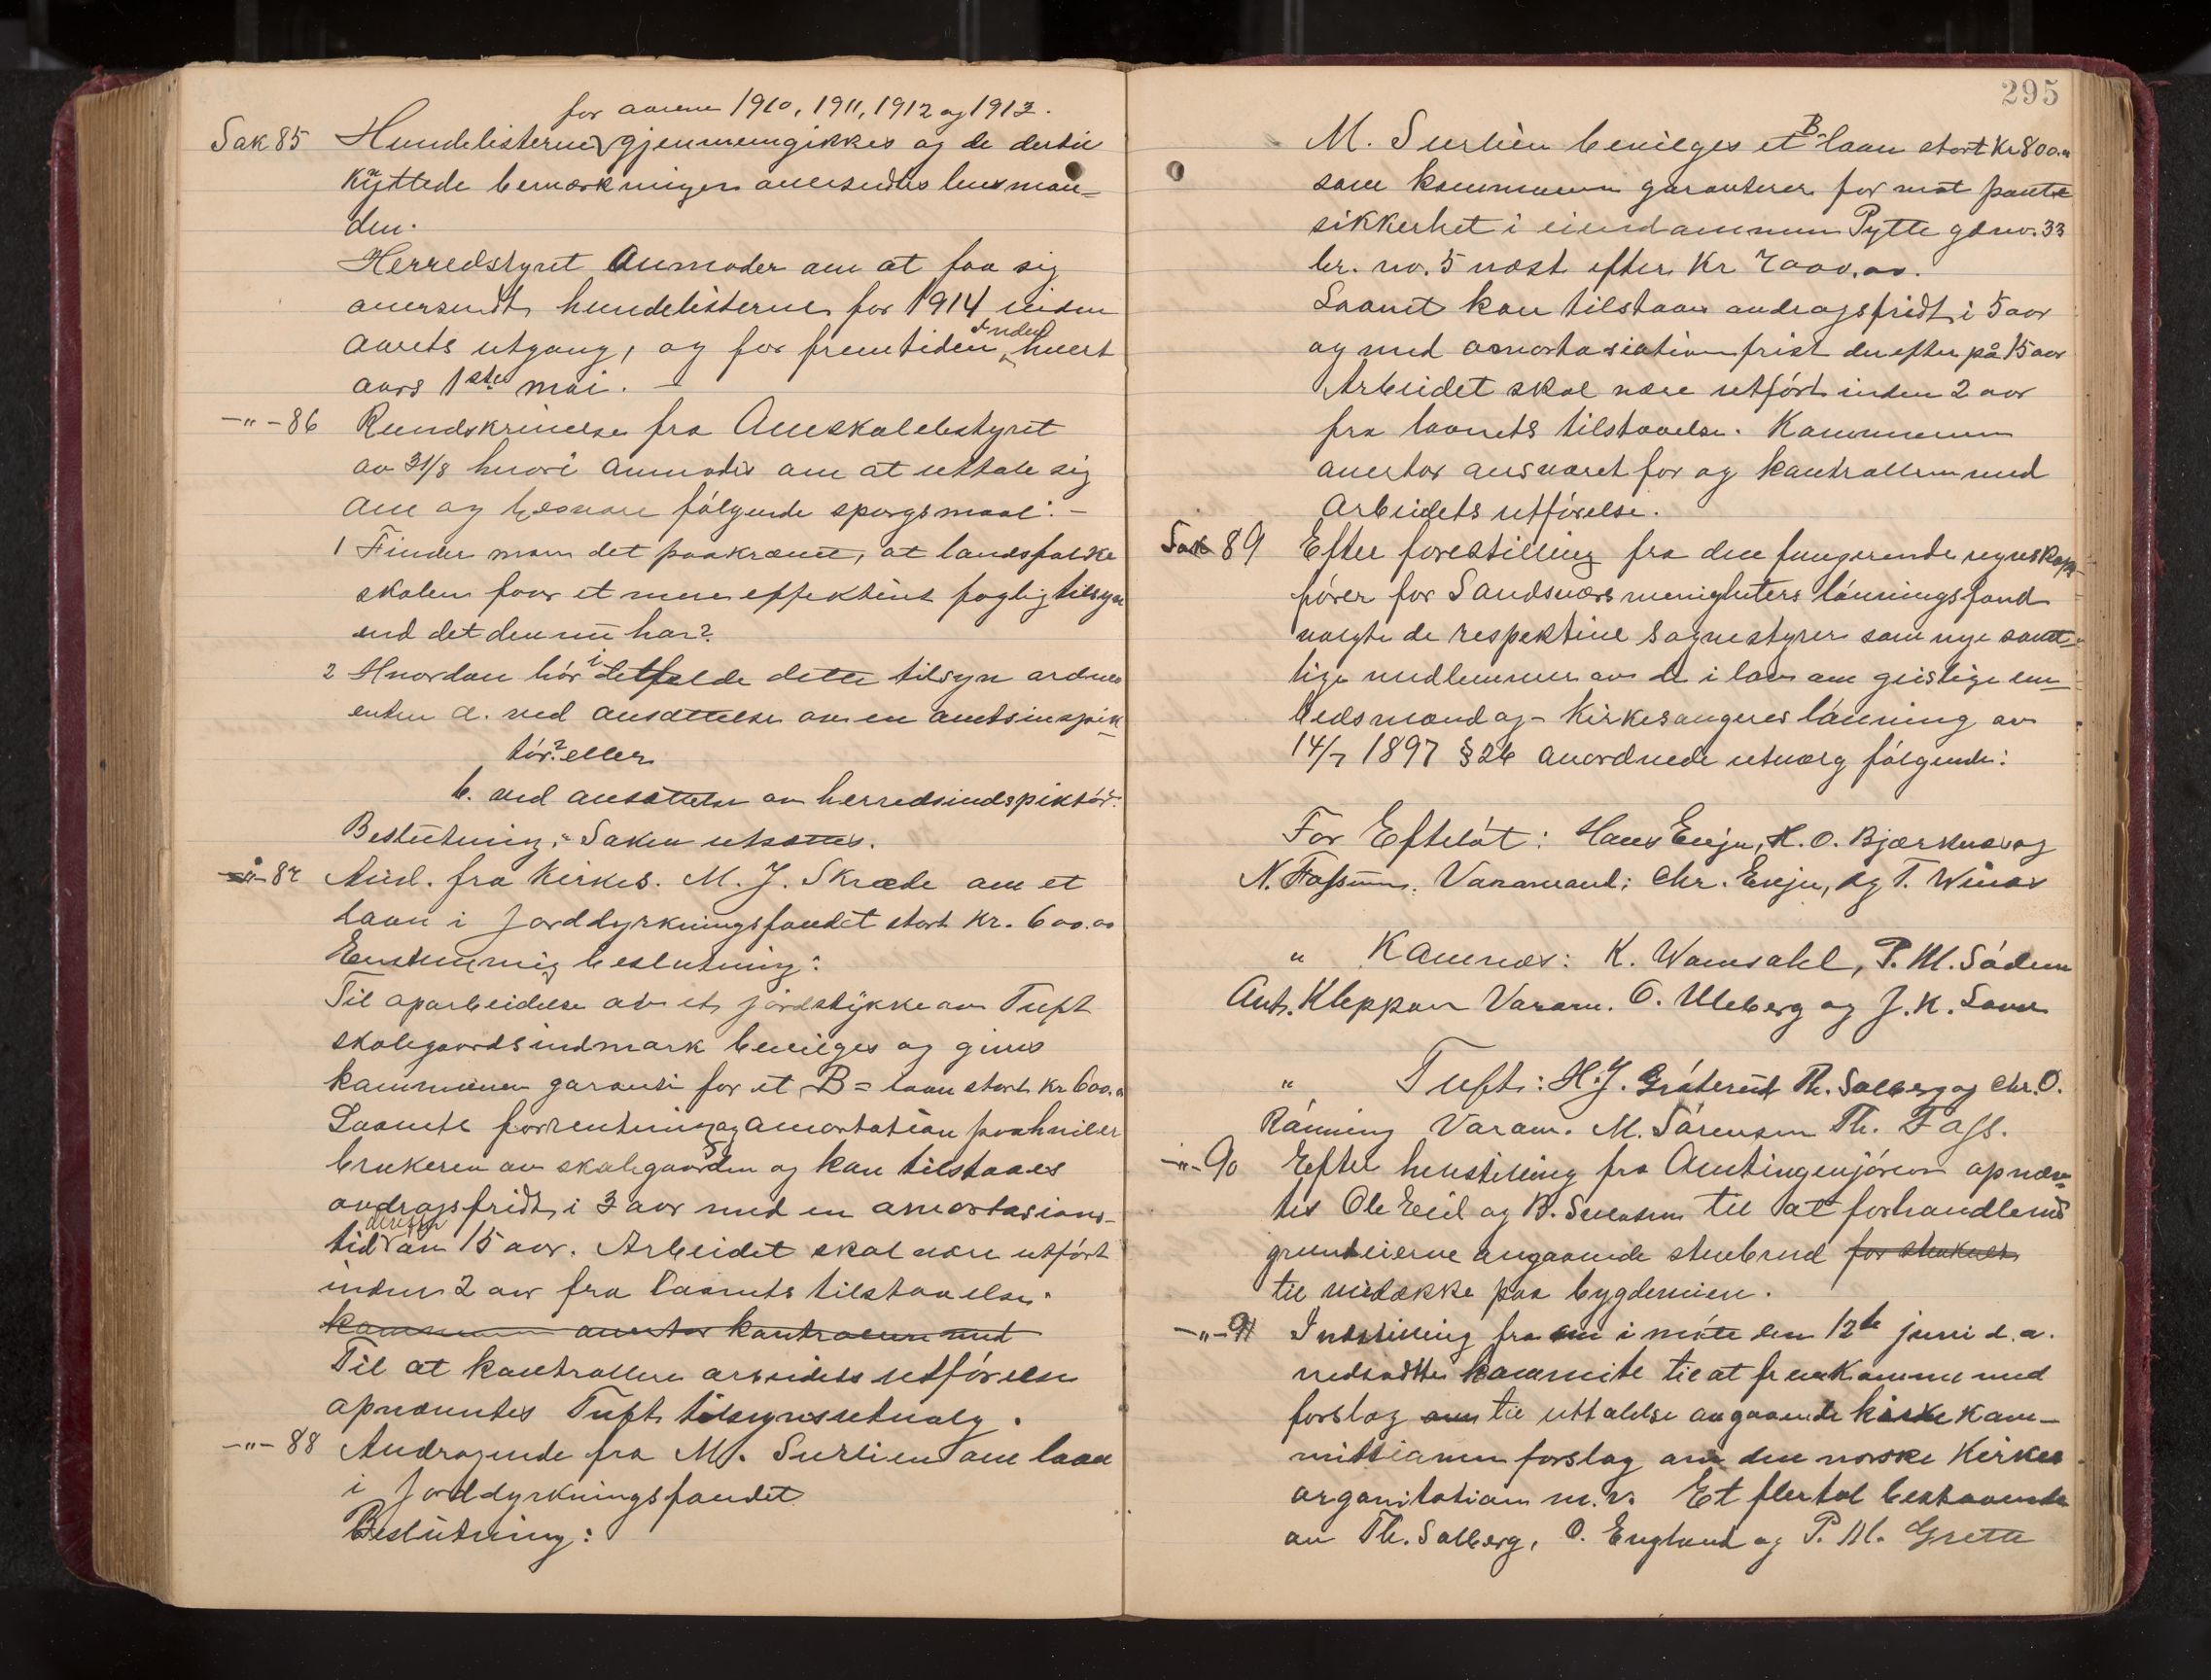 for aarene 1910, 1911, 1912 og 1913.
Sak 85 Hundelisterne gjennemgikkes og de dertil
knyttede bemærkninger oversendtes lensman-
den.
Herredstyret anmoder om at faa sig
oversendt hundelisterne for 1914 inden
aarets utgang, og for fremtiden inden hvert
aars 1ste mai. —
—"— 86 Rundskrivelse fra Amtskolebestyret
av 31/8 hvori anmodes om at uttale sig
om og besvare følgende spørgsmaal: —
1 Finder man det paakrævet, at landsfolke
skolen faar et mere effektivt faglig tilsyn
end det den nu har?
2 Hvordan bør i detfelde dette tilsyn ordnes
enten a. ved ansættelse av en amtsinspek
tør? eller
b. ved ansættelse av herredsindspektør.
Beslutning: Saken utsættes.
—"— 87 And. fra Kirkes. M. J. Skræde om et
laan i Jorddyrkningsfondet stort kr. 600.00
Enstemmig beslutning:
Til oparbeidelse av et jordstykke av Tuft
skolegaards indmark bevilges og gives
kommunen garanti for et B = laan stort kr 600.00
Laanets forrentning og amortation paahviler
brukeren av skolegaarden og kan tilstaaes
avdragsfridt i 3 aar med en amortasions-
tid derefter av 15 aar. Arbeidet skal være utført
inden 2 aar fra laanets tilstaaelse.
kommunen overtar kontrollen med
Til at kontrollere arbeidets utførelse
opnævntes Tuft tilsynsutvalg.
—"— 88 Andragende fra M. Surlien om laan
i Jorddyrkningsfondet
Beslutning:
295
M. Surlien bevilges et B- laan stort Kr 800.00
som kommunen garanterer for mot pante
sikkerhet i eiendommen Pytte gdno. 33
br. no. 5 næst efter Kr 7000,00.
Laanet kan tilstaaes avdragsfridt i 5 aar
og med amortasiationfrist derefter på 15 aar
Arbeidet skal være utført inden 2 aar
fra laanets tilstaaelse. Kommunen
overtar ansvaret for og kontrollen med
arbeidets utførelse.
Sak 89 Efter forestilling fra den fungerende regnskaps-
fører for Sandsværs menigheters lønningsfond
valgte de respektive sognestyrer som nye samt-
lige medlemmer av de i lov om geistlige em-
bedsmænd og - kirkesangeres lønning av
14/7 1897 § 26 anordnede utvalg følgende:
For Efteløt: Hans Evju, H. O. Bjærknes og
N. Fossum. Varamænd: Chr. Evju, og T. Winor
" Komnes: K. Wamsahl, P. M. Sådem
Ant. Kleppan Varam. O. Uleberg og J. K. Lone
" Tuft: H. J. Gråterud Th. Solberg og Chr. O.
Rønning Varam. M. Sørensen Th. Foss.
—"— 90 Efter henstilling fra Amtingenjøren opnævn-
tes Ole Eeil og B. Svensen til at forhandle med
grundeierne angaaende stenbrud for stenkult
til veidække paa bygdeveien.
—"— 91 Indstilling fra en i møte den 12te juni d. a.
nedsatte kommite til at fremkomme med
forslag om til uttalelse angaaende kirke kom-
missionens forslag om den norske Kirkes
organisation m.v. Et flertal bestaaende
av Th. Solberg, O. Englund og P. M. Grette